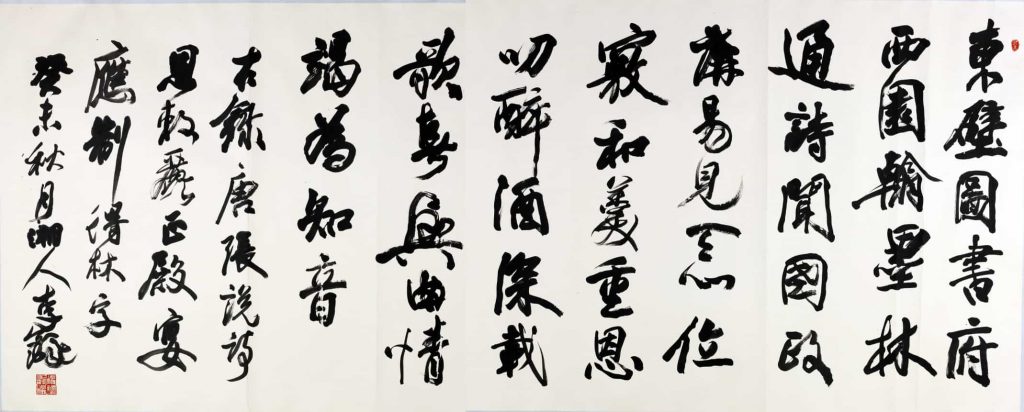 東壁圖書府
西園翰墨林
通詩聞國政
講易見天心位
竊和羹重恩
叨醉酒深載
歌春興曲情
竭為知音
右錄唐張說詩
恩敕麗正殿宴
應制得林字
癸未秋月湘人李鐸